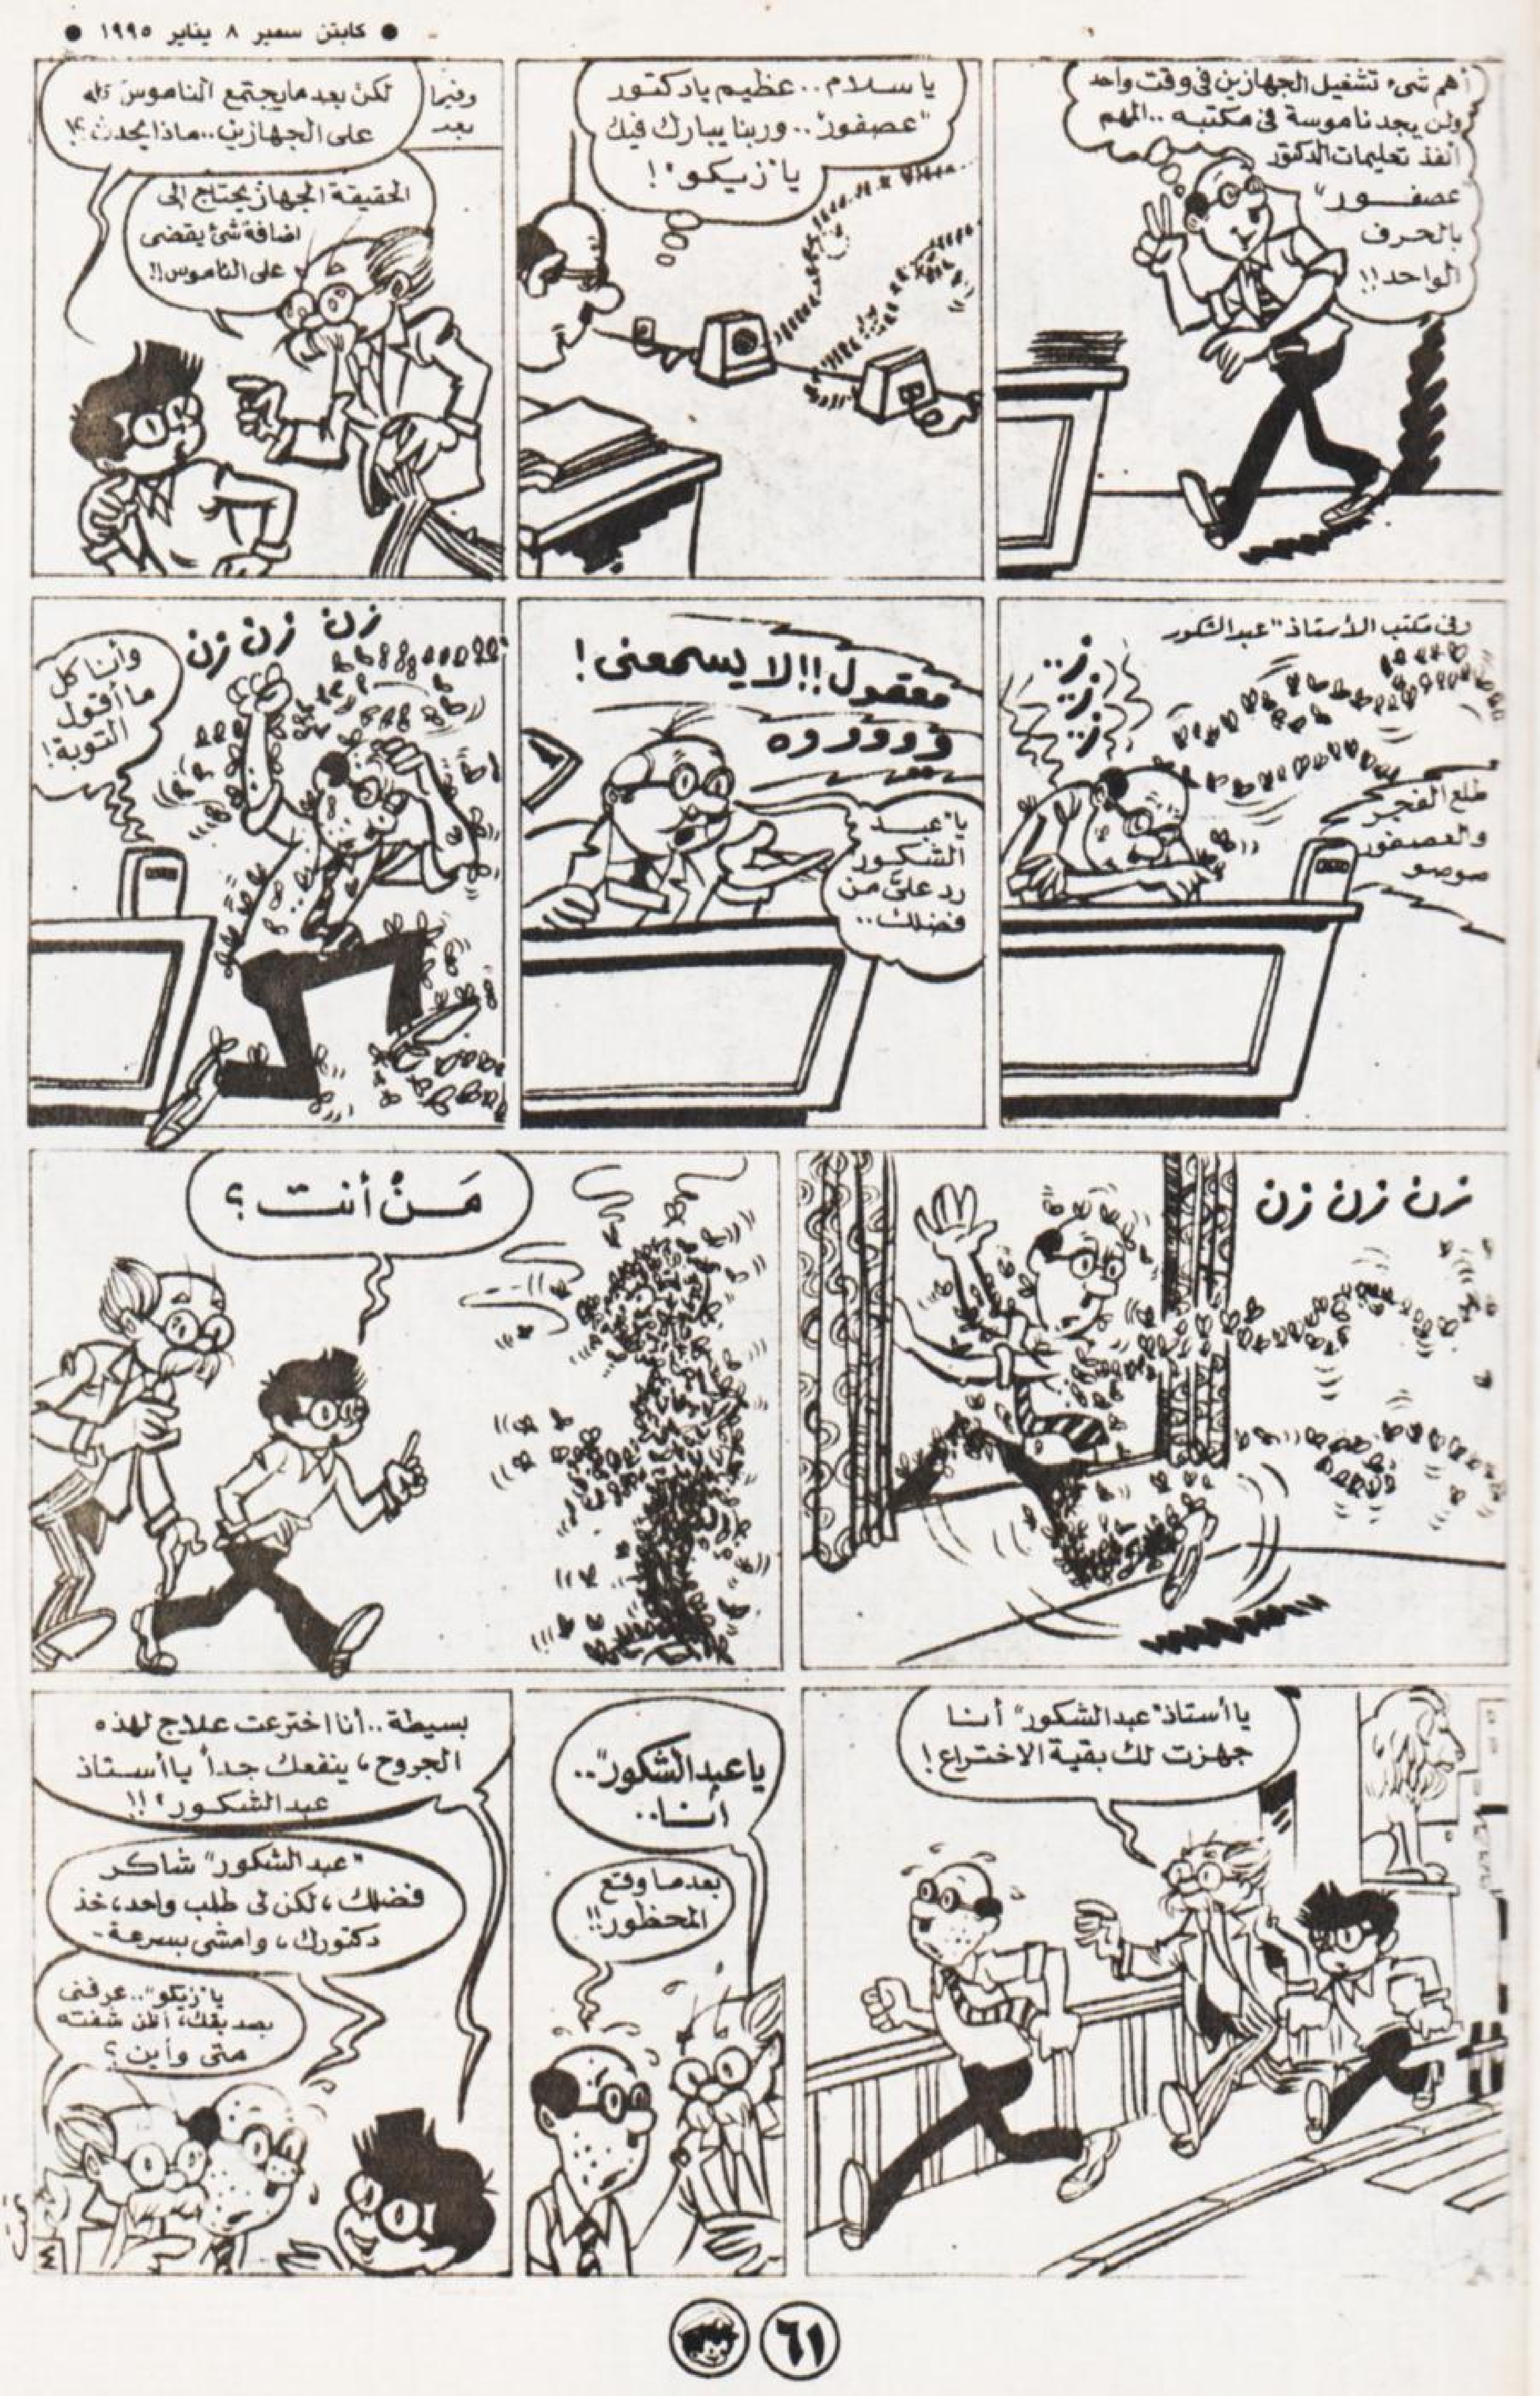 ● كابتن سمير ٨ يناير ١٩٩٥ ●
أهم شىء تشغيل الجهازين فى وقت واحد
ولن يجد ناموسة فى مكتبه .. المهم
أنفذ تعليمات الدكتور
"عصفــور"
بالحرف
الواحد !!
يا سلام .. عظيم يا دكتور
"عصفور" .. وربنا يبارك فيك
يا "زيكو" !
وفيما
بعد
لكن بعد ما يجتمع الناموس كله
على الجهازين .. ماذا يحدث ؟!
الحقيقة الجهاز يحتاج إلى
اضافة شئ يقضى
على الناموس !!
وفى مكتب الأستاذ "عبد الشكور
ز..
ز..
ز..
طلع الفجر
والعصفور
صوصو
معقول !! لا يسمعنى !
ووووووه
يا "عبد
الشكور
رد علىّ من
فضلك ..
زن زن زن
وأنا كل
ما أقول
التوبة !
زن زن زن
مَـنْ أنت ؟
يا أستاذ "عبد الشكور" أنا
جهزت لك بقية الاختراع !
يا عبد الشكور" ..
أنا ..
بعد ما وقع
المحظور !!
بسيطة .. أنا اخترعت علاج لهذه
الجروح ، ينفعك جداً يا أستاذ
عبد الشكور" !!
"عبد الشكور" شاكر
فضلك ، لكن لى طلب واحد ، خذ
دكتورك ، وامشى بسرعة -
يا "زيكو" .. عرفنى
بصديقك ، أظن شفته
متى وأين ؟
تمت
٦١